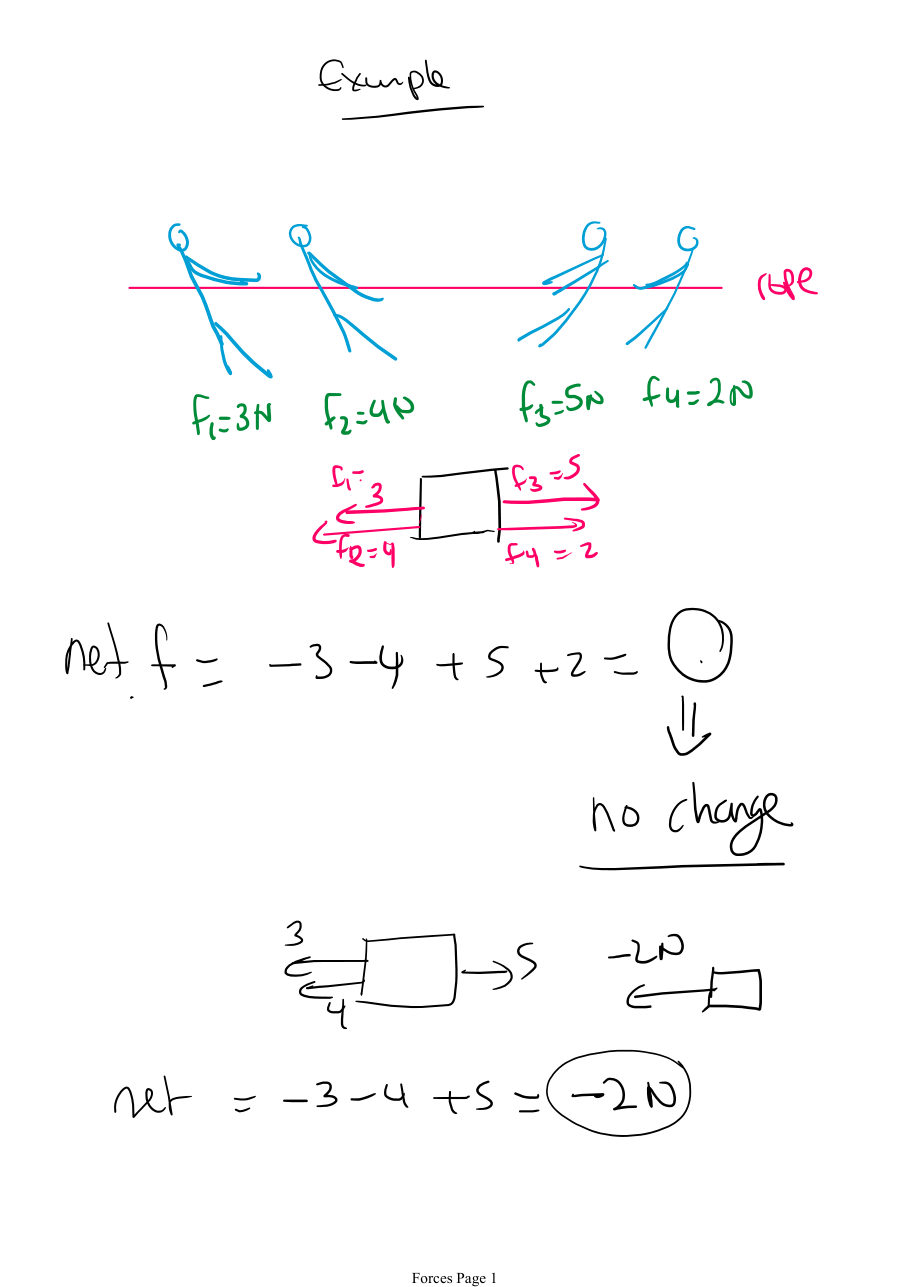 Example
rope
f₁=3N f₂=4N f₃=5N f4=2N
f₁= 3 f₃=5
f₂=4 f4=2
net f = -3-4+5+2=0
no change
3 5 -2N
4
net = -3-4+5=-2N
Forces Page 1